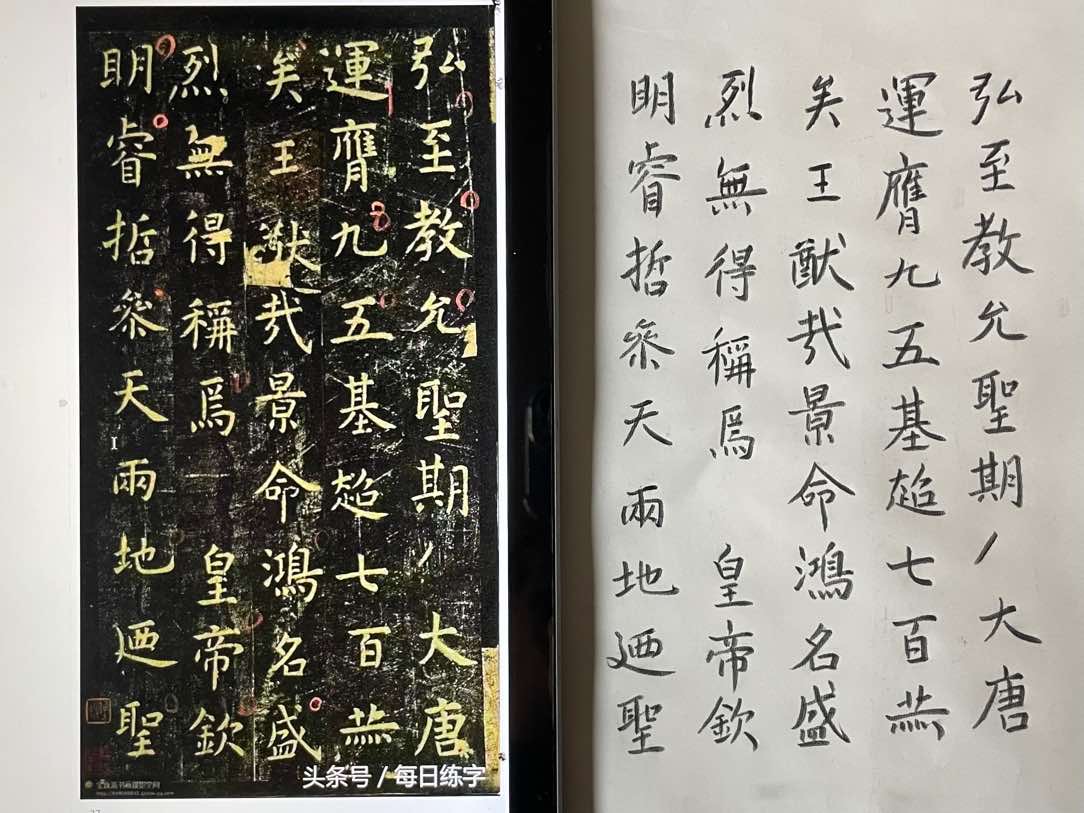 弘至教允聖期丿大唐
運膺九五基超七百赫
矣王猷哉景命鴻名盛
烈無得稱焉 皇帝欽
明睿哲參天兩地迺聖
头条号 / 每日练字
弘至教允聖期丿大唐
運膺九五基超七百赫
矣王猷哉景命鴻名盛
烈無得稱焉 皇帝欽
明睿哲參天兩地迺聖